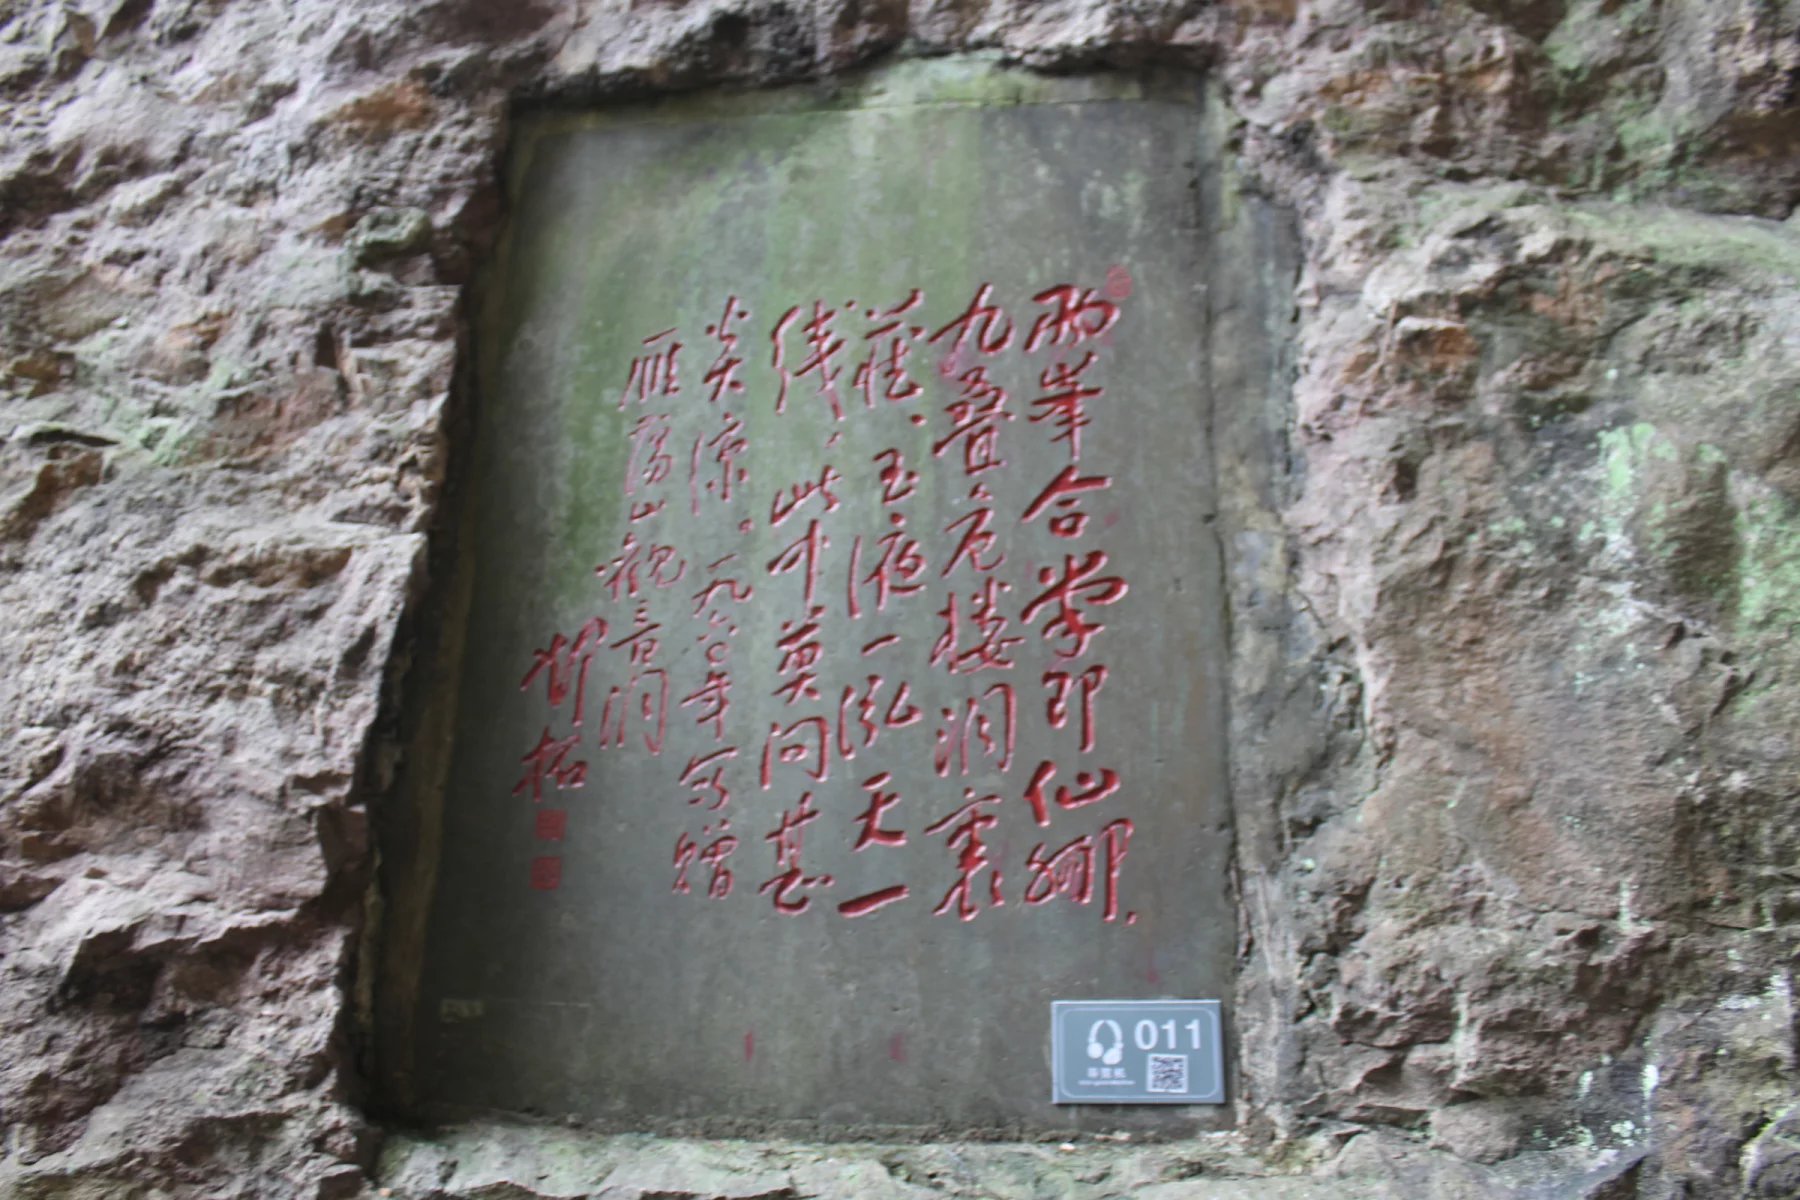 两峯合掌即仙乡，
九叠危楼洞裏
藏。玉液一泓天一
线，此中莫问甚
炎凉。一九八〇年写赠
雁荡山观音洞
昕拓
011